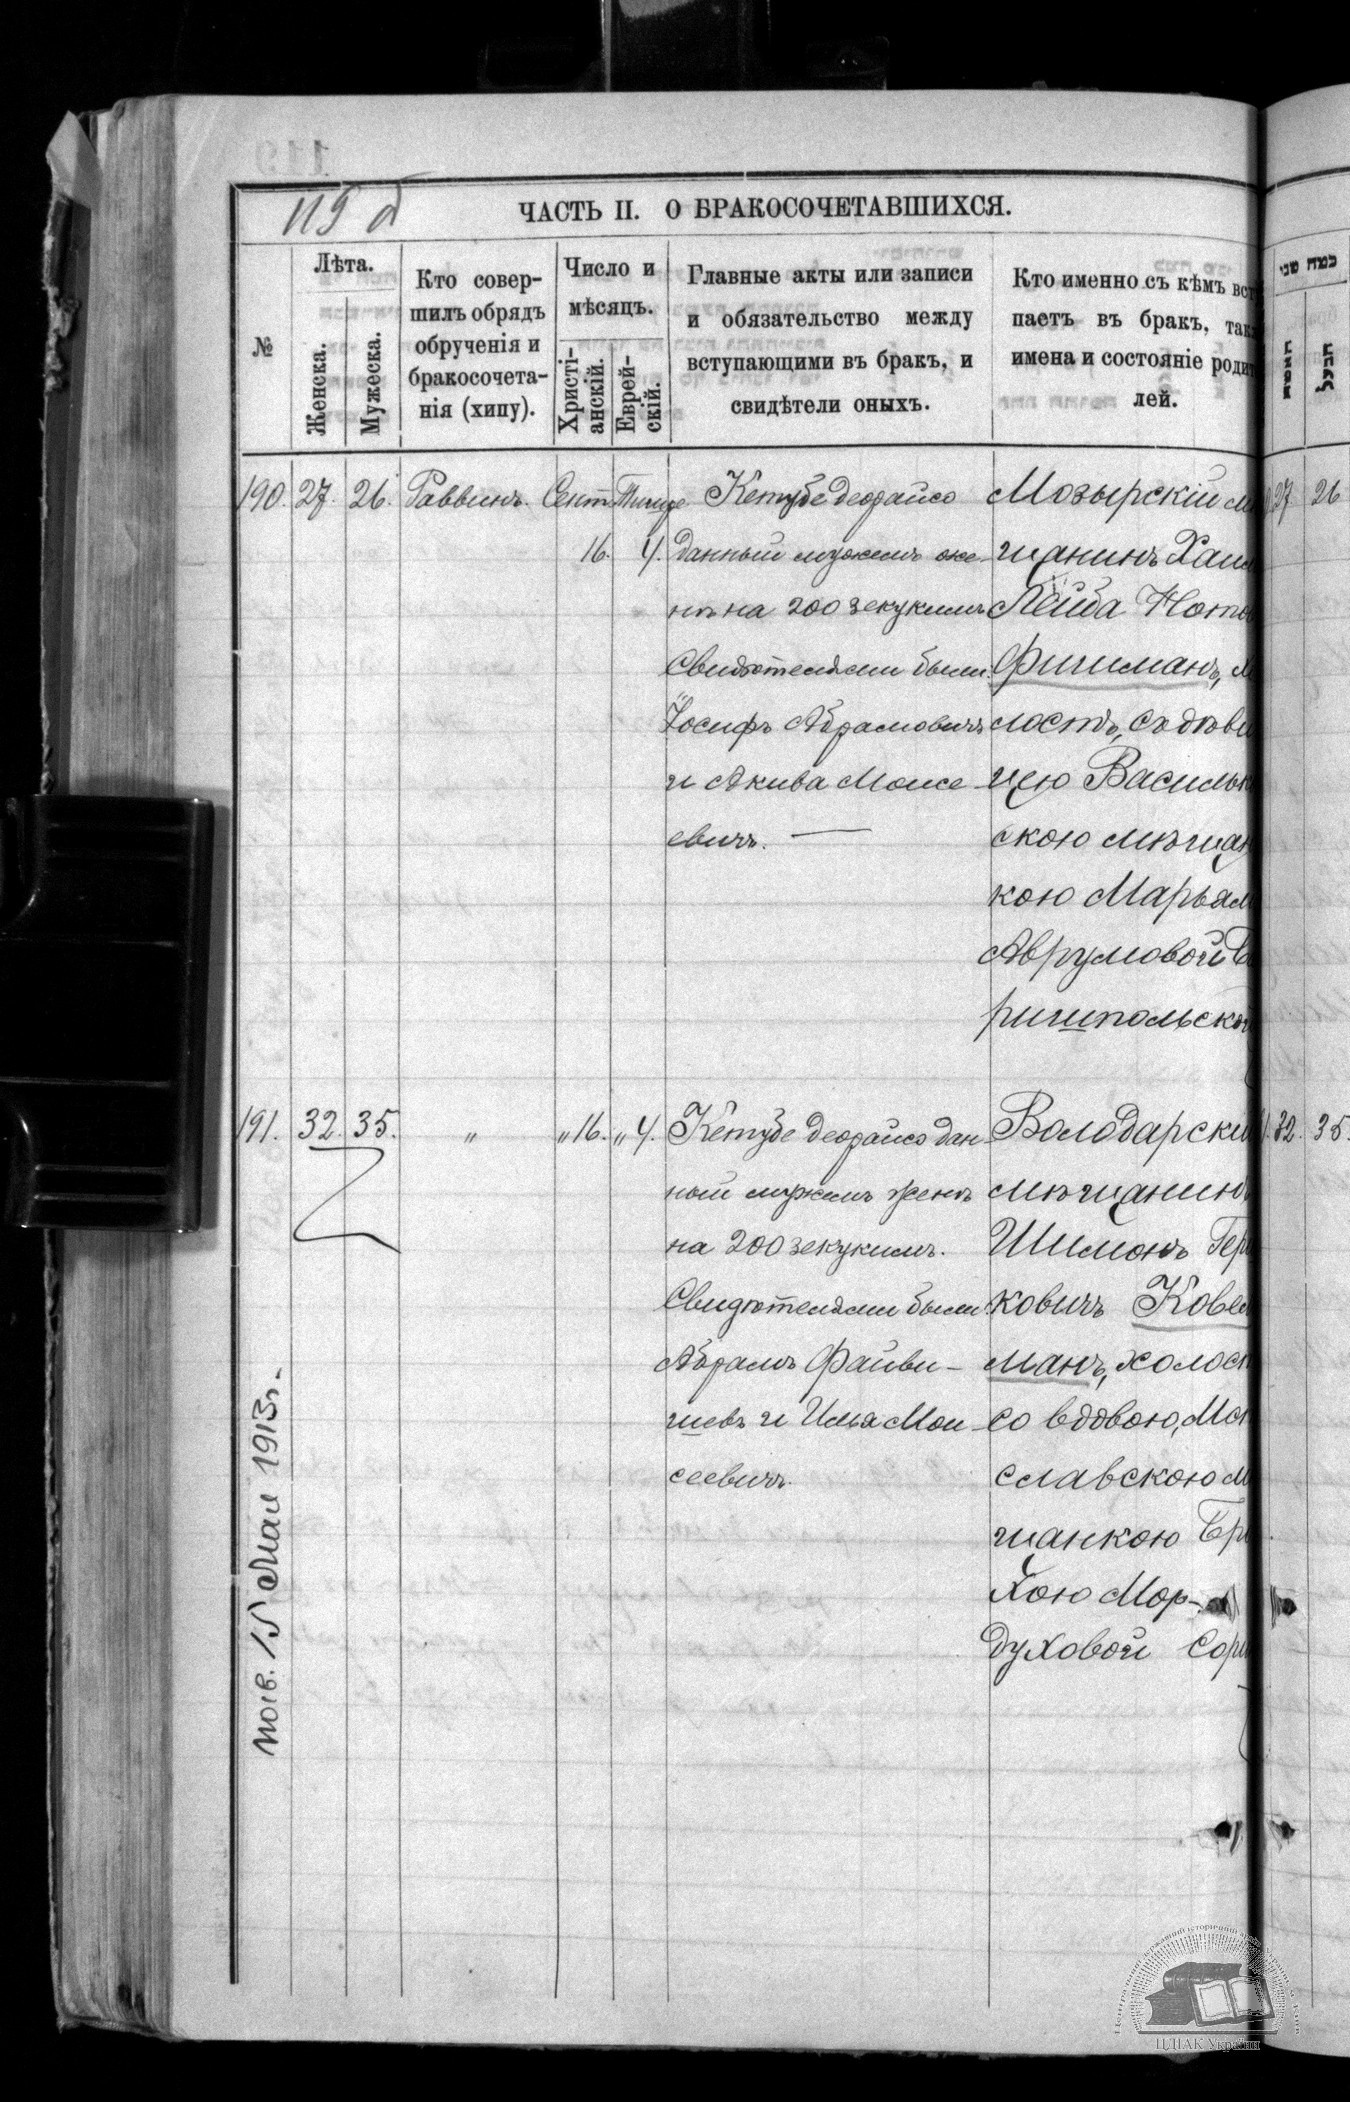 119 б
ЧАСТЬ II. О БРАКОСОЧЕТАВШИХСЯ.
№
Лѣта.
Женска.
Мужеска.
Кто совер-
шилъ обрядъ
обрученія и
бракосочета-
нія (хипу).
Число и
мѣсяцъ.
Христі-
анскій.
Еврей-
скій.
Главные акты или записи
и обязательство между
вступающими въ бракъ, и
свидѣтели оныхъ.
Кто именно съ кѣмъ вст
паетъ въ бракъ, так
имена и состояніе родит
лей.
190. 27. 26. Раввинъ. Сент. Тишре
16. 4.
Кетубе деорайсо
данный мужемъ же-
нѣ на 200 зекукимъ
Свидѣтелями были:
Іосифъ Абрамовичъ
и Акива Моисе-
евичъ.
Мозырскій м
щанинъ Хаим
Лейба Ното
Фишманъ,
лостъ, съ дѣви
цею Васильк
скою мѣщан
кою Марьям
Аврумовой
ришпольской
27 26
191. 32. 35. " "16. "4.
Кетубе деорайсо дан-
ный мужемъ женѣ
на 200 зекукимъ.
Свидѣтелями были:
Абрамъ Файви-
шевъ и Илья Мои-
сеевичъ.
Володарскій
мѣщанинъ
Шимонъ Гер
ковичъ Ковел
манъ, холост
со вдовою, Мст
славскою м
щанкою Бра
хою Мор-
духовой Сори
32. 35.
15 Мая 1913г.
כמה שני
ЦДІАК України